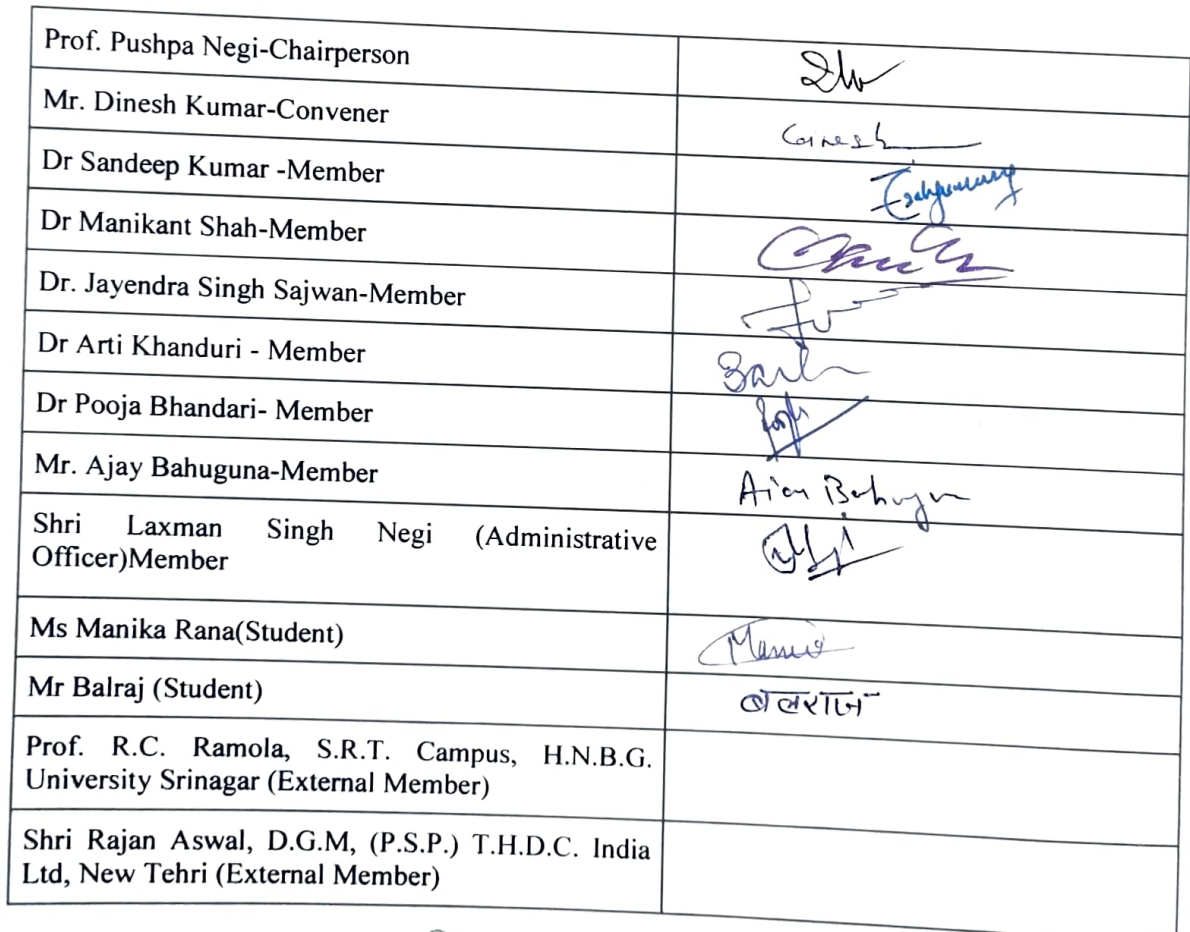 Prof. Pushpa Negi-Chairperson
Mr. Dinesh Kumar-Convener
Dinesh
Dr Sandeep Kumar -Member
Dr Manikant Shah-Member
Dr. Jayendra Singh Sajwan-Member
Dr Arti Khanduri - Member
Dr Pooja Bhandari- Member
Mr. Ajay Bahuguna-Member
Shri Laxman Singh Negi (Administrative
Officer)Member
Ms Manika Rana(Student)
Mr Balraj (Student)
बलराज
Prof. R.C. Ramola, S.R.T. Campus, H.N.B.G.
University Srinagar (External Member)
Shri Rajan Aswal, D.G.M, (P.S.P.) T.H.D.C. India
Ltd, New Tehri (External Member)